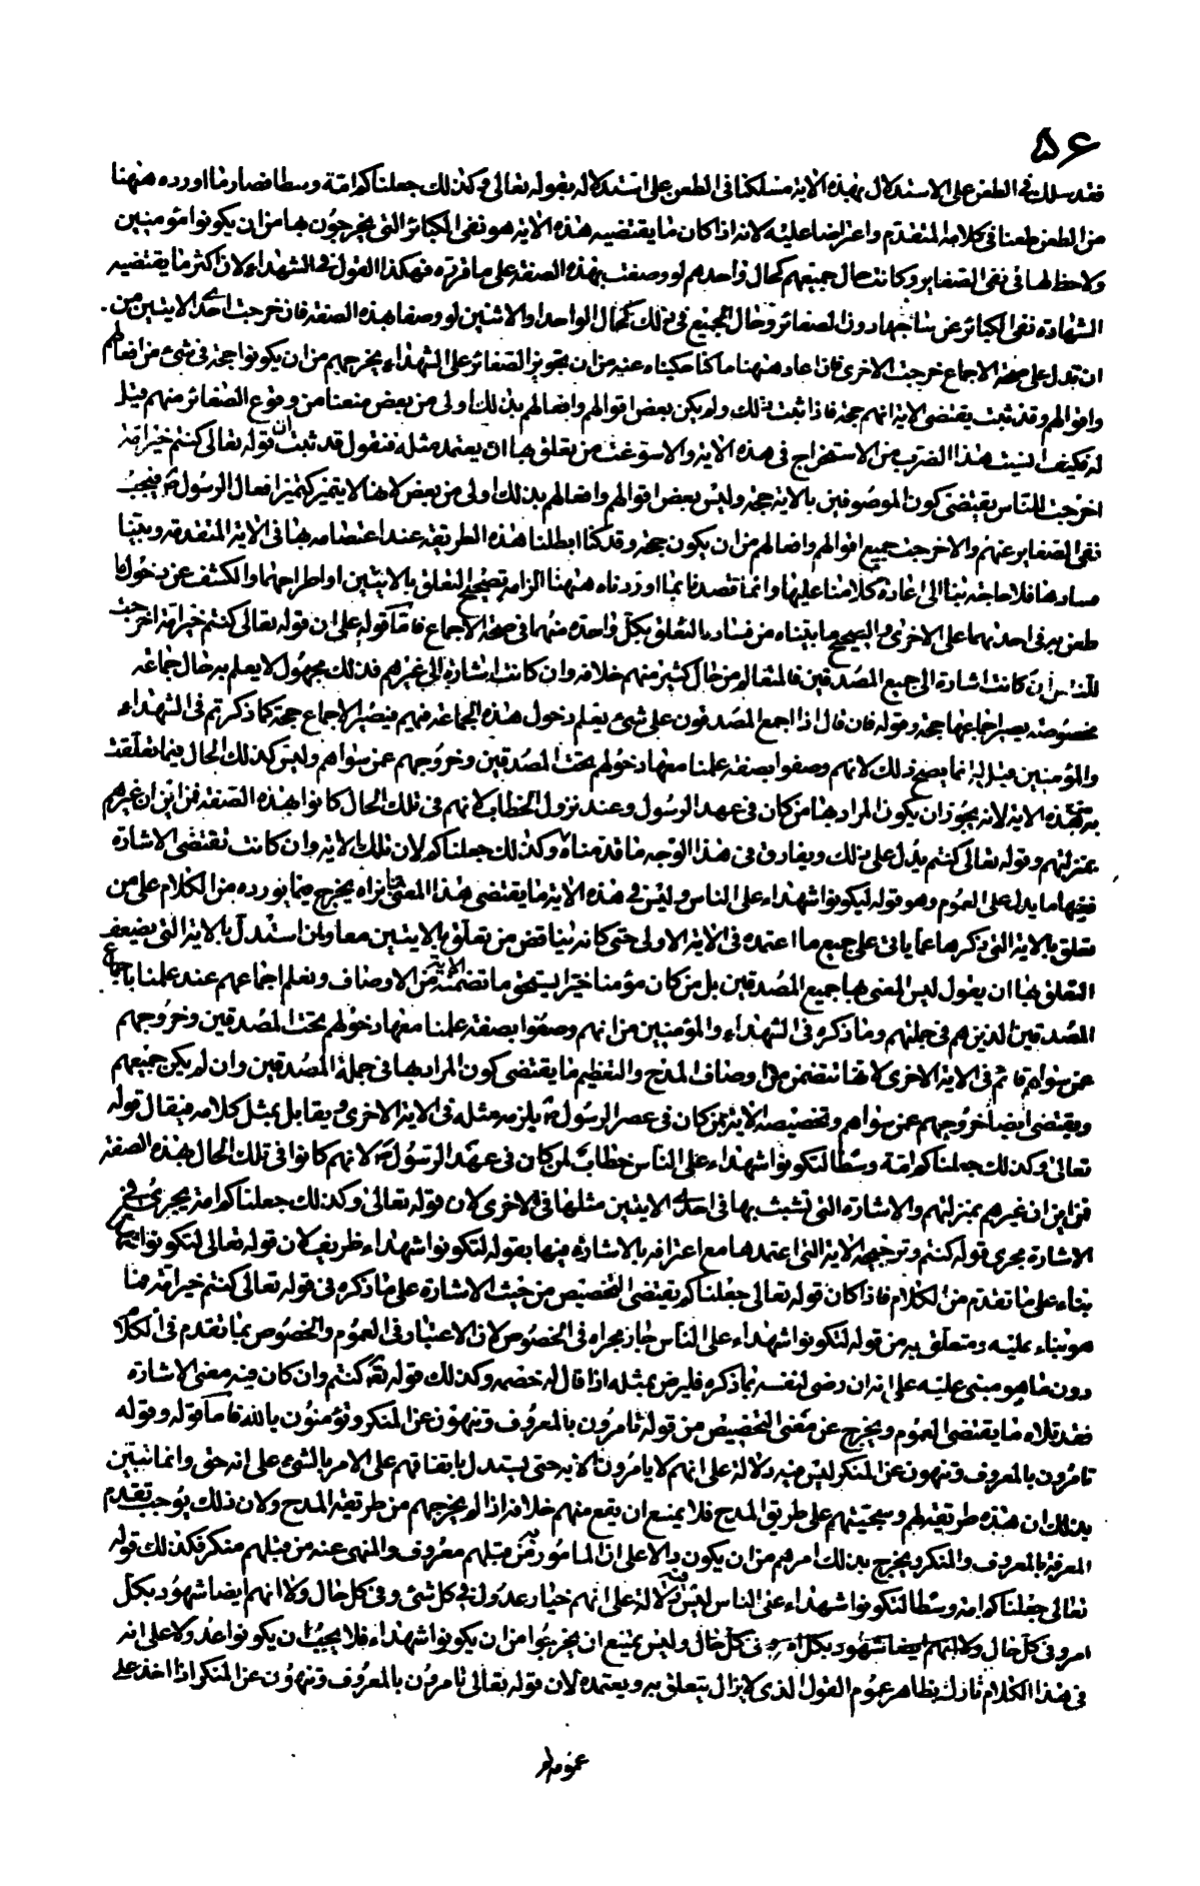 ۵۶
فقد سلك في الطعن على الاستدلال بهذه الاية مسلكنا في الطعن على استدلاله بقوله تعالى وكذلك جعلناكم امة وسطا فصار ما اورده ههنا
من الطعن طعنا في كلامه المتقدم واعتراضا عليه لانه اذا كان ما يقتضيه هذه الاية هو نفى الكبائر التى يخرجون بها من ان يكونوا مؤمنين
ولا حظ لها في نفى الصغاير وكانت حال جميعهم كحال واحدهم لو وصف بهذه الصفة على ما قرره فهكذا القول في الشهداء لان اكثر ما يقتضيه
الشهادة نفى الكبائر عن اصحابها دون الصغائر وحال الجميع في ذلك كحال الواحد والاثنين لو وصفا بهذه الصفة فان خرجت احدى الايتين من
ان تدل على صحة الاجماع خرجت الاخرى فان عاد ههنا ما كنا حكيناه عنه من ان تجويز الصغائر على الشهداء يخرجهم من ان يكونوا حجة في شىء من افعالهم
واقوالهم وقد ثبت بمقتضى الاية انهم حجة فاذا ثبت ذلك ولم يكن بعض اقوالهم وافعالهم بذلك اولى من بعض منعنا من وقوع الصغائر منهم قيل
له فكيف انسيت هذا الضرب من الاستخراج في هذه الاية والا سوغت من تعلق بها ان يعتمد مثله فنقول قد ثبت ان قوله تعالى كنتم خير امة
اخرجت للناس يقتضى كون الموصوفين بالاية حجة وليس بعض اقوالهم وافعالهم بذلك اولى من بعض لانها لا يتميز كتميز افعال الرسول فيجب
نفى الصغاير عنهم والا خرجت جميع اقوالهم وافعالهم من ان يكون حجة وقد كنا ابطلنا هذه الطريقة عند اعتصامه بها في الاية المتقدمة وبينا
فسادها فلا حاجة بنا الى اعادة كلامنا عليها وانما قصدنا بما اوردناه ههنا الزامه تصحيح التعلق بالايتين او اطراحهما والكشف عن دخول ما
طعن به في احديهما على الاخرى والصحيح ما بيناه من فساد التعلق بكل واحدة منهما في صحة الاجماع فاما قوله على ان قوله تعالى كنتم خير امة اخرجت
للناس ان كانت اشارة الى جميع المصدقين فالمتعالم من حال كثير منهم خلافه وان كانت اشارة الى غيرهم فذلك مجهول لا يعلم به حال جماعة
مخصوصة يصير اجماعها حجة وقوله فان قال اذا اجمع المصدقون على شىء يعلم دخول هذه الجماعة فيهم فيصير الاجماع حجة كما ذكرتم في الشهداء
والمؤمنين قيل له انما يصح ذلك لانهم وصفوا بصفة علمنا معها دخولهم تحت المصدقين وخروجهم عمن سواهم وليس كذلك الحال فيما تعلقت
به بهذه الاية لانه يجوز ان يكون المراد بها من كان في عهد الرسول وعند نزول الخطاب لانهم في تلك الحال كانوا بهذه الصفة فمن اين ان غيرهم
بمنزلتهم وقوله تعالى كنتم يدل على ذلك ويفارق في هذا الوجه ما قدمناه وكذلك جعلناكم لان تلك الاية وان كانت تقتضى الاشارة
ففيها ما يدل على العموم وهو قوله ليكونوا شهداء على الناس وليس في هذه الاية ما يقتضى هذا المعنى فانا نراه يخرج فيما يورده من الكلام على من
تعلق بالاية التى ذكرها عما ياتى على جميع ما اعتمده في الاية الاولى حتى كانه يناقض من تعلق بالايتين معا ولمن استدل بالاية التى يضعف
التعلق بها ان يقول ليس المعنى بها جميع المصدقين بل من كان مؤمنا خيرا يستحق ما تضمنته الاية من الاوصاف ونعلم اجماعهم عند علمنا باجماع
المصدقين الذين هم في جملتهم وما ذكره في الشهداء والمؤمنين من انهم وصفوا بصفة علمنا معها دخولهم تحت المصدقين وخروجهم
عمن سواهم قائم في الاية الاخرى لانها تتضمن من اوصاف المدح والتعظيم ما يقتضى كون المراد بها في جملة المصدقين وان لم يكن جميعهم
ويقتضى ايضا خروجهم عمن سواهم وتخصيصه الاية بمن كان في عصر الرسول يلزمه مثله في الاية الاخرى ويقابل بمثل كلامه فيقال قوله
تعالى وكذلك جعلناكم امة وسطا لتكونوا شهداء على الناس خطاب لمن كان في عهد الرسول لانهم كانوا في تلك الحال بهذه الصفة
فمن اين ان غيرهم بمنزلتهم والاشارة التى تشبث بها في احدى الايتين مثلها في الاخرى لان قوله تعالى وكذلك جعلناكم امة يجرى في
الاشارة مجرى قوله كنتم وترجيحه الاية التى اعتمدها مع اعترافه بالاشارة فيها بقوله لتكونوا شهداء ظريف لان قوله تعالى لتكونوا
بناء على ما تقدم من الكلام فاذا كان قوله تعالى جعلناكم يقتضى التخصيص من حيث الاشارة على ما ذكره في قوله تعالى كنتم خير امة فما
هو بناء عليه ومتعلق به من قوله لتكونوا شهداء على الناس جاز مجراه في الخصوص لان الاعتبار في العموم والخصوص بما تقدم في الكلام
دون ما هو مبنى عليه على انه ان رضى لنفسه بما ذكره فليرض بمثله اذا قال له خصمه وكذلك قوله تعالى كنتم وان كان فيه معنى الاشارة
فقد تلاه ما يقتضى العموم ويخرج عن معنى التخصيص من قوله تامرون بالمعروف وتنهون عن المنكر وتؤمنون بالله فاما قوله وقوله
تامرون بالمعروف وتنهون عن المنكر ليس فيه دلالة على انهم لا يامرون الا به حتى يستدل باتفاقهم على الامر بالشىء على انه حق وانما نبين
بذلك ان هذه طريقتهم وسجيتهم على طريق المدح فلا يمنع ان يقع منهم خلافه اذا لم يخرجهم من طريقة المدح ولان ذلك يوجب تقدم
المعرفة بالمعروف والمنكر ويخرج بذلك امرهم من ان يكون دالا على ان المامور به من قبلهم معروف والمنهى عنه من قبلهم منكر فكذلك قوله
تعالى جعلناكم امة وسطا لتكونوا شهداء على الناس ليس فيه دلالة على انهم خيار عدول في كل شىء وفي كل حال ولا انهم ايضا شهود بكل
امر وفي كل حال ولا انهم ايضا شهود بكل امر وفى كل حال وليس يمتنع ان يخرجوا من ان يكونوا شهداء فلا يجب ان يكونوا عدولا على انه
في هذا الكلام تارك بظاهر عموم القول الذى لا يزال يتعلق به ويعتمده لان قوله تعالى تامرون بالمعروف وتنهون عن المنكر اذا اخذ على
عمومه